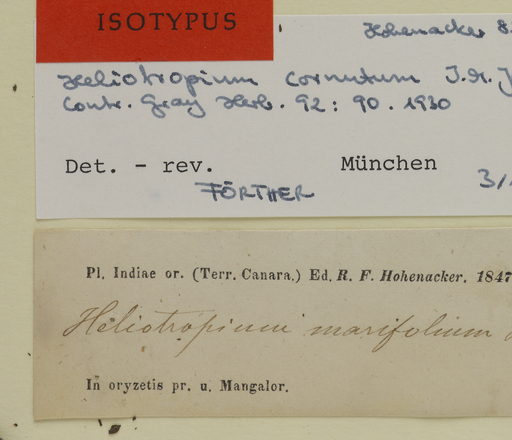 ISOTYPUS
Hohenacker 8
Heliotropium cornutum I.M. J
Contr. Gray Herb. 92: 90. 1930
Det. - rev. München
FÖRTHER 3/
Pl. Indiae or. (Terr. Canara.) Ed. R. F. Hohenacker. 1847
Heliotropium marifolium
In oryzetis pr. u. Mangalor.